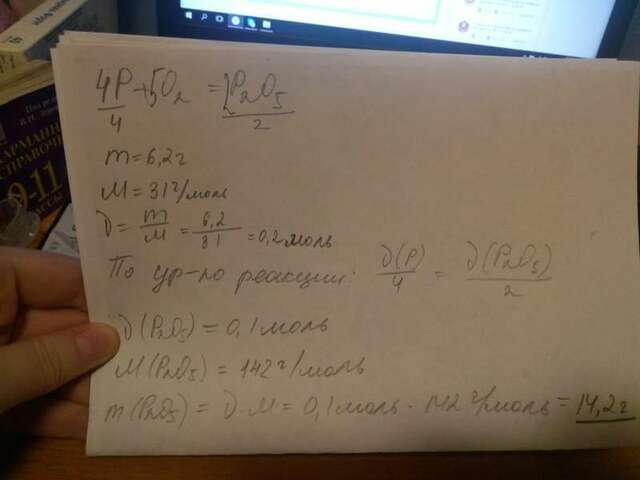 4P+5O₂ = 2P₂O₅
4 2
m=6,2г
M=31г/моль
ν= m/M = 6,2/31 =0,2моль
По ур-ю реакции: ν(P)/4 = ν(P₂O₅)/2
ν(P₂O₅) = 0,1моль
M(P₂O₅) = 142г/моль
m(P₂O₅) = ν·M = 0,1моль · 142г/моль = 14,2г
СПРАВОЧН
9-11